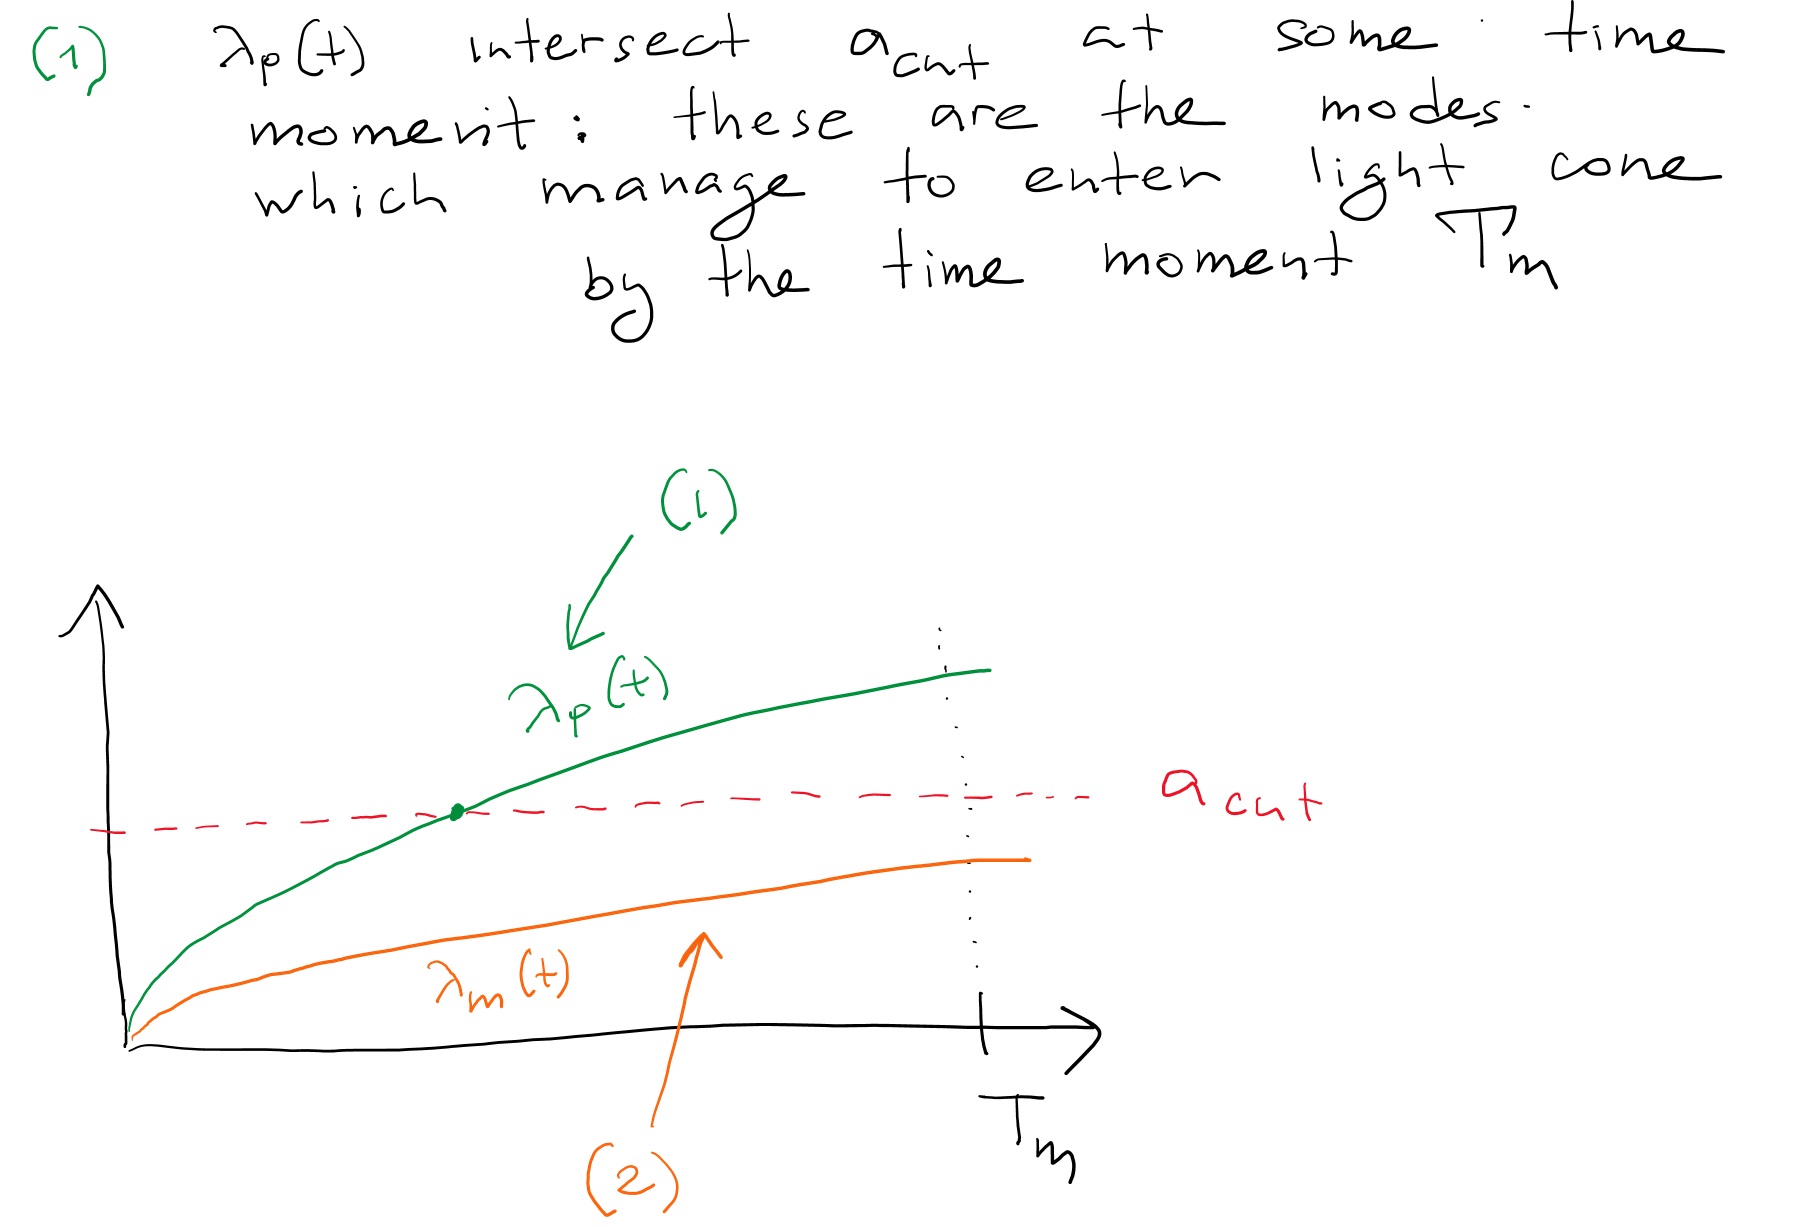 (1) λp(t) intersect acut at some time
moment: these are the modes
which manage to enter light cone
by the time moment Tm
(1)
λp(t)
acut
λm(t)
Tm
(2)